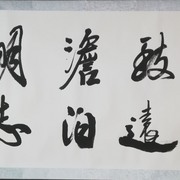 致遠
澹泊
明志